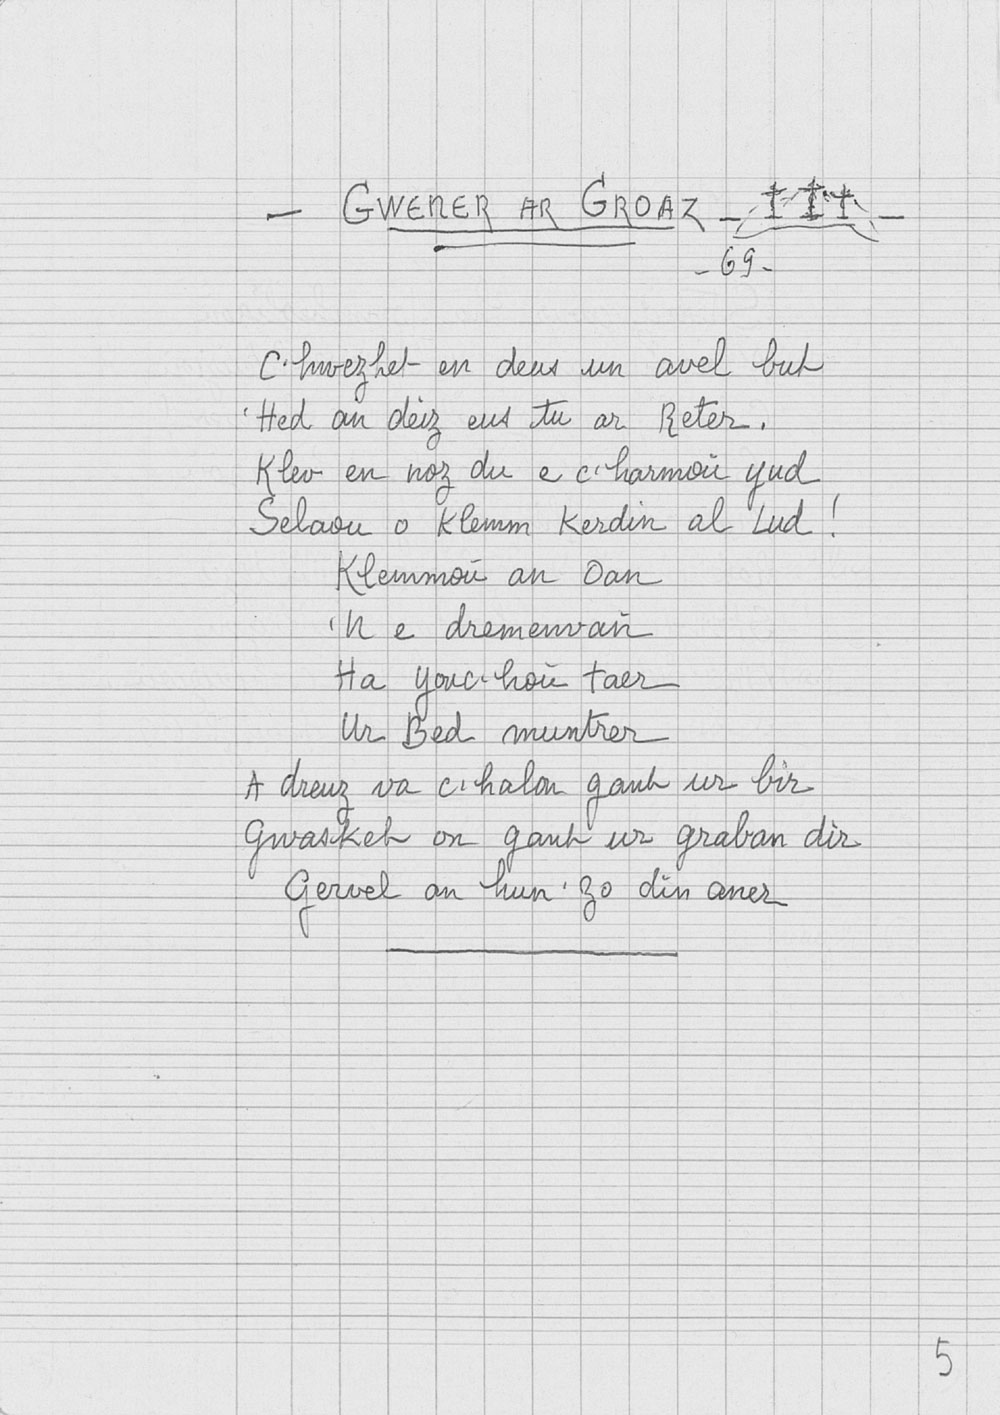 — GWENER AR GROAZ —
- 69 -
C'hwezhet en deus un avel but
'Hed an deiz eus tu ar Reter.
Klev en noz du e c'harmoù yud
Selaou o klemm kerdin al Lud !
Klemmoù an Oan
'N e dremenvañ
Ha youc'hoù taer
Ur Bed muntrer
A dreuz va c'halon gant ur bir
Gwasket on gant ur graban dir
Gervel an hun 'zo din aner
5